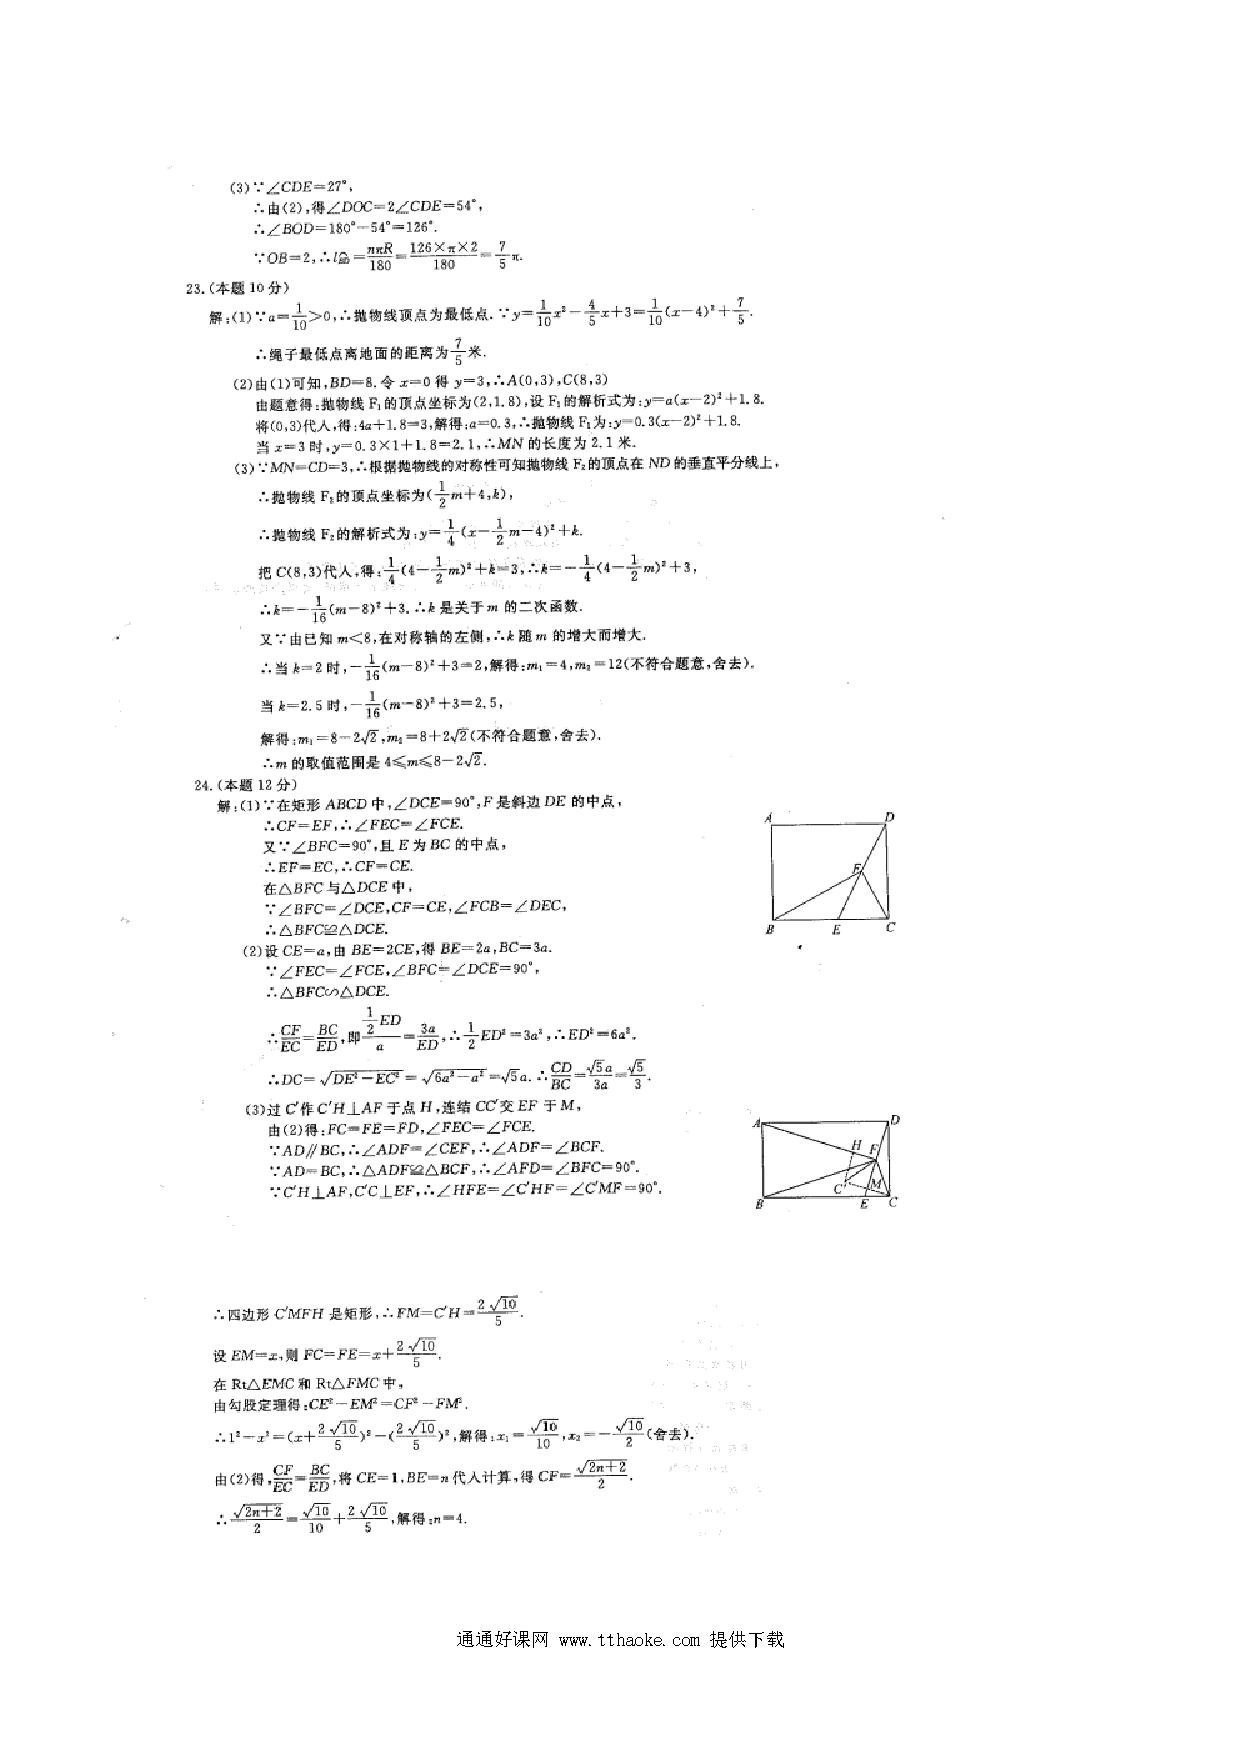 (3)∵∠CDE=27°,
∴由(2),得∠DOC=2∠CDE=54°,
∴∠BOD=180°-54°=126°.
∵OB=2,∴l弧=nπR/180=126×π×2/180=7/5π.
23.(本题10分)
解:(1)∵a=1/10>0,∴抛物线顶点为最低点.∵y=1/10x²-4/5x+3=1/10(x-4)²+7/5.
∴绳子最低点离地面的距离为7/5米.
(2)由(1)可知,BD=8.令x=0得y=3,∴A(0,3),C(8,3)
由题意得:抛物线F₁的顶点坐标为(2,1.8),设F₁的解析式为:y=a(x-2)²+1.8.
将(0,3)代人,得:4a+1.8=3,解得:a=0.3,∴抛物线F₁为:y=0.3(x-2)²+1.8.
当x=3时,y=0.3×1+1.8=2.1,∴MN的长度为2.1米.
(3)∵MN=CD=3,∴根据抛物线的对称性可知抛物线F₂的顶点在ND的垂直平分线上,
∴抛物线F₂的顶点坐标为(1/2m+4,k),
∴抛物线F₂的解析式为:y=1/4(x-1/2m-4)²+k.
把C(8,3)代人,得:1/4(4-1/2m)²+k=3,∴k=-1/4(4-1/2m)²+3,
∴k=-1/16(m-8)²+3.∴k是关于m的二次函数.
又∵由已知m<8,在对称轴的左侧,∴k随m的增大而增大.
∴当k=2时,-1/16(m-8)²+3=2,解得:m₁=4,m₂=12(不符合题意,舍去).
当k=2.5时,-1/16(m-8)²+3=2.5,
解得:m₁=8-2√2,m₂=8+2√2(不符合题意,舍去).
∴m的取值范围是4≤m≤8-2√2.
24.(本题12分)
解:(1)∵在矩形ABCD中,∠DCE=90°,F是斜边DE的中点,
∴CF=EF,∴∠FEC=∠FCE.
又∵∠BFC=90°,且E为BC的中点,
∴EF=EC,∴CF=CE.
在△BFC与△DCE中,
∵∠BFC=∠DCE,CF=CE,∠FCB=∠DEC,
∴△BFC≌△DCE.
A D
F
B E C
(2)设CE=a,由BE=2CE,得BE=2a,BC=3a.
∵∠FEC=∠FCE,∠BFC=∠DCE=90°,
∴△BFC∽△DCE.
∴CF/EC=BC/ED,即1/2ED/a=3a/ED,∴1/2ED²=3a²,∴ED²=6a².
∴DC=√(DE²-EC²)=√(6a²-a²)=√5a.∴CD/BC=√5a/3a=√5/3.
(3)过C′作C′H⊥AF于点H,连结CC′交EF于M,
由(2)得:FC=FE=FD,∠FEC=∠FCE.
∵AD∥BC,∴∠ADF=∠CEF,∴∠ADF=∠BCF.
∵AD=BC,∴△ADF≌△BCF,∴∠AFD=∠BFC=90°.
∵C′H⊥AF,C′C⊥EF,∴∠HFE=∠C′HF=∠C′MF=90°.
A D
H F
C′ M
B E C
∴四边形C′MFH是矩形,∴FM=C′H=2√10/5.
设EM=x,则FC=FE=x+2√10/5.
在Rt△EMC和Rt△FMC中,
由勾股定理得:CE²-EM²=CF²-FM².
∴1²-x²=(x+2√10/5)²-(2√10/5)²,解得:x₁=√10/10,x₂=-√10/2(舍去).
由(2)得,CF/EC=BC/ED,将CE=1,BE=n代人计算,得CF=√(2n+2)/2.
∴√(2n+2)/2=√10/10+2√10/5,解得:n=4.
通通好课网 www.tthaoke.com 提供下载